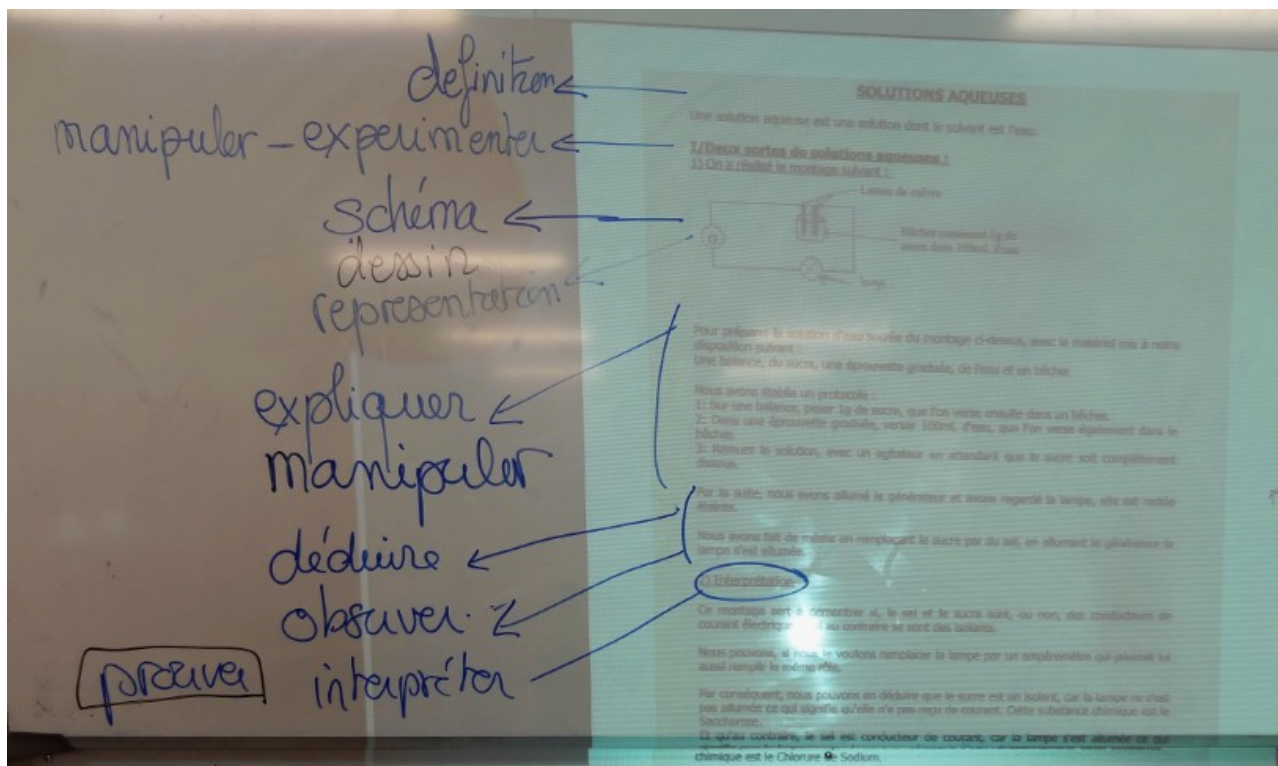 definition
manipuler - experimenter
schéma
dessin
representation
expliquer
manipuler
déduire
observer.
interpréter
prouver
SOLUTIONS AQUEUSES
Une solution aqueuse est une solution dont le solvant est l'eau.
I/Deux sortes de solutions aqueuses :
1) On a réalisé le montage suivant :
Lames de cuivre
G
Bécher contenant 1g de
sucre dans 100mL d'eau
Pour préparer la solution d'eau sucrée du montage ci-dessus, avec le matériel mis à notre
disposition suivant :
Une balance, du sucre, une éprouvette graduée, de l'eau et un bécher.
Nous avons établie un protocole :
1: Sur une balance, peser 1g de sucre, que l'on verse ensuite dans un bécher.
2: Dans une éprouvette graduée, verser 100mL d'eau, que l'on verse également dans le
bécher.
3: Remuer la solution, avec un agitateur en attendant que le sucre soit complètement
dissous.
Par la suite, nous avons allumé le générateur et avons regardé la lampe, elle est restée
éteinte.
Nous avons fait de même en remplaçant le sucre par du sel, en allumant le générateur la
lampe s'est allumée.
2) Interprétation
Ce montage sert à démontrer si, le sel et le sucre sont, ou non, des conducteurs de
courant électrique au contraire se sont des isolants.
Nous pouvons, si nous le voulons remplacer la lampe par un ampèremètre qui pourrait lui
aussi remplir le même rôle.
Par conséquent, nous pouvons en déduire que le sucre est un isolant, car la lampe ne s'est
pas allumée ce qui signifie qu'elle n'a pas reçu de courant. Cette substance chimique est le
Saccharose.
Et qu'au contraire, le sel est conducteur de courant, car la lampe s'est allumée ce qui
chimique est le Chlorure de Sodium.